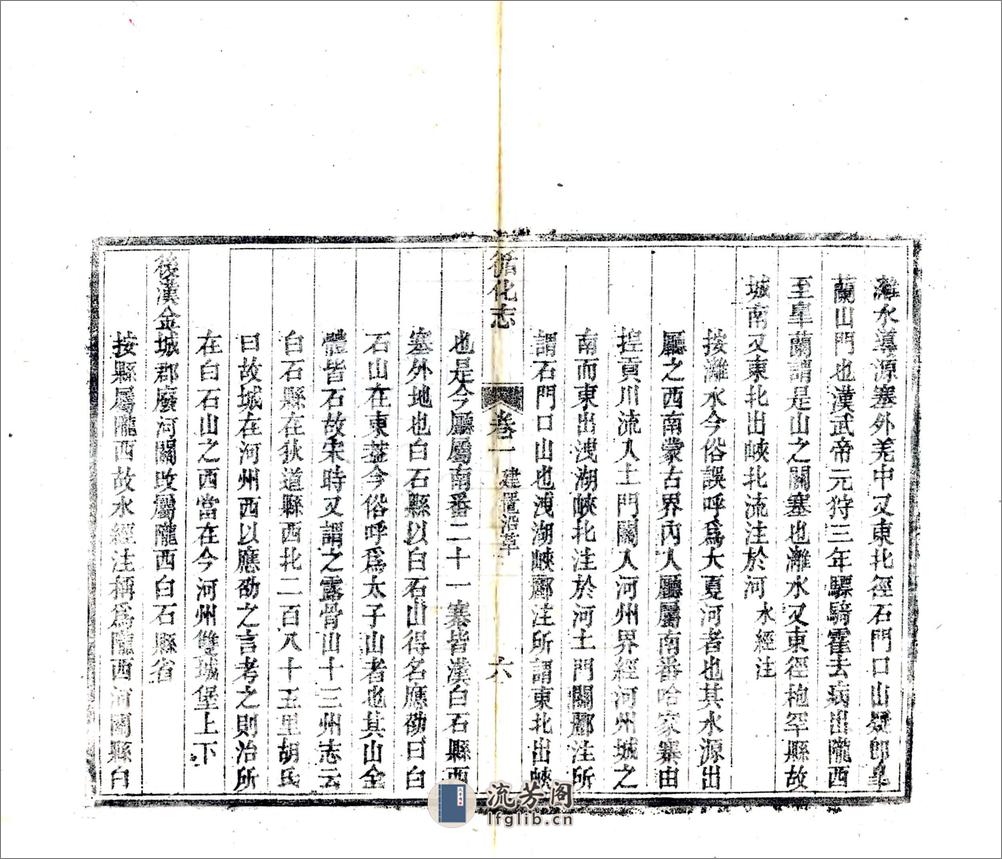 灕水導源塞外羌中又東北徑石門口山疑即皐
蘭山門也漢武帝元狩三年驃騎霍去病出隴西
至皐蘭謂是山之關塞也灕水又東徑枹罕縣故
城南又東北出峽北流注於河水經注
按灕水今俗誤呼爲大夏河者也其水源出
廳之西南蒙古界內入廳屬南番哈家寨由
捏貢川流入土門關入河州界經河州城之
南而東出洩湖峽北注於河土門關酈注所
謂石門口山也洩湖峽酈注所謂東北出峽
循化志
卷一
建置沿革
六
也是今廳屬南番二十一寨皆漢白石縣西
塞外地也白石縣以白石山得名應劭曰白
石山在東蓋今俗呼爲太子山者也其山全
體皆石故宋時又謂之露骨山十三州志云
白石縣在狄道縣西北二百八十五里胡氏
曰故城在河州西以應劭之言考之則治所
在白石山之西當在今河州雙城堡上下
後漢金城郡廢河關改屬隴西白石縣省
按縣屬隴西故水經注稱爲隴西河關縣白
流芳阁
lfglib.cn